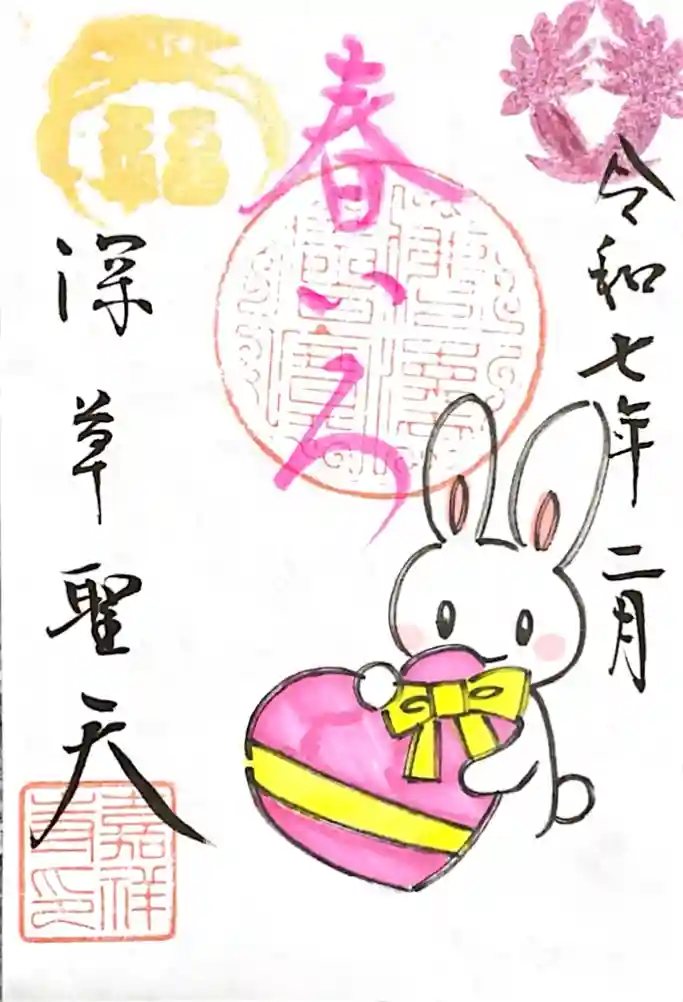 令和七年二月
春いろ
深草聖天
嘉祥
寺印